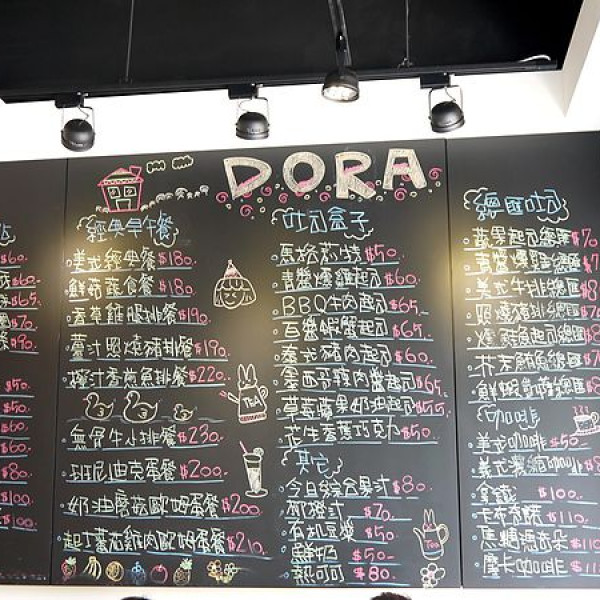 DORA
經典早午餐
美式經典餐 $180.
鮮菇蔬食餐 $180.
香草雞腿排餐 $190.
薑汁照燒豬排餐 $190.
檸汁香煎魚排餐 $220.
無骨牛小排餐 $230.
班尼迪克蛋餐 $200.
奶油蘑菇歐姆蛋餐 $200.
起士蕃茄雞肉歐姆蛋餐 $210.
吐司盒子
馬格莉特 $50.
青醬燻雞起司 $60.
BBQ牛肉起司 $65.
百匯蝦蟹起司 $65.
泰式豬肉起司 $60.
墨西哥辣肉醬起司 $65.
草莓蘋果奶油起司 $55.
花生香蕉巧克力 $50.
其它
今日綜合果汁 $80.
$70.
有机豆漿 $50.
鮮奶 $50.
熱可可 $80.
TEA
TEA
總匯吐司
蔬果起司總匯 $70
青醬燻雞總匯 $7
美式牛排總匯 $8
照燒豬排總匯 $8
燻鮭魚起司總匯 $8
芥末鮪魚總匯 $7
鮮蝦凱薩總匯 $8
咖啡
美式咖啡 $50.
美式濃縮 $8
拿鐵 $100.
卡布奇諾 $110.
焦糖瑪奇朵 $110
摩卡咖啡 $11
$60.
$60.
$65.
$70.
$90.
$50.
$50.
$60.
$60.
$80.
$100.
$100.